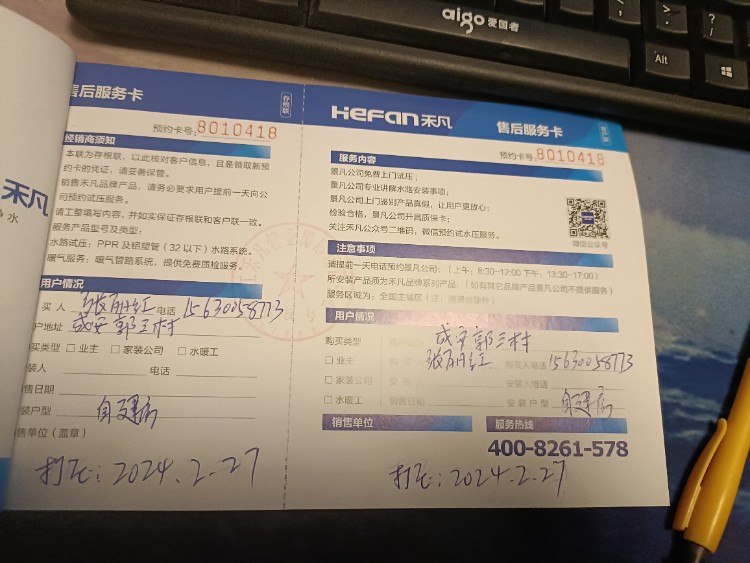 aigo 爱国者
Alt
售后服务卡
存根联
预约卡号:8010418
经销商须知
本联为存根联，以此核对客户信息，且是领取新预
约卡的凭证，请妥善保管。
销售禾凡品牌产品，请务必要求用户提前一天向公
司预约试压服务。
请工整填写内容，并如实保证存根联和客户联一致。
服务产品型号及类型：
水路试压：PPR及铝塑管（32以下）水路系统。
暖气服务：暖气管路系统，提供免费质检服务。
用户情况
买人 张丽红 电话 15630058773
户地址 成安郭三村
买类型 □ 业主 □ 家装公司 □ 水暖工
装人 电话
售日期
装户型 自建房
售单位（盖章）
打压：2024.2.27
禾凡
水
HeFan禾凡
售后服务卡
预约卡号:8010418
服务内容
景凡公司免费上门试压；
景凡公司专业讲解水路安装事项；
景凡公司上门鉴别产品真假，让用户更放心；
检验合格，景凡公司开具质保卡；
关注禾凡公众号二维码，微信预约试水压服务。
微信公众号
注意事项
请提前一天电话预约景凡公司：（上午：8:30-12:00 下午：13:30-17:00）
所安装产品须为禾凡品牌系列产品；（如有其它品牌产品景凡公司不提供服务）
服务区域为：全国主城区
用户情况
购买类型 成安郭三村
□ 业主 张丽红 购买人电话 15630058773
□ 家装公司 安装人 安装人电话
□ 水暖工 销售日期 安装户型 自建房
销售单位
服务热线
400-8261-578
打压：2024.2.27